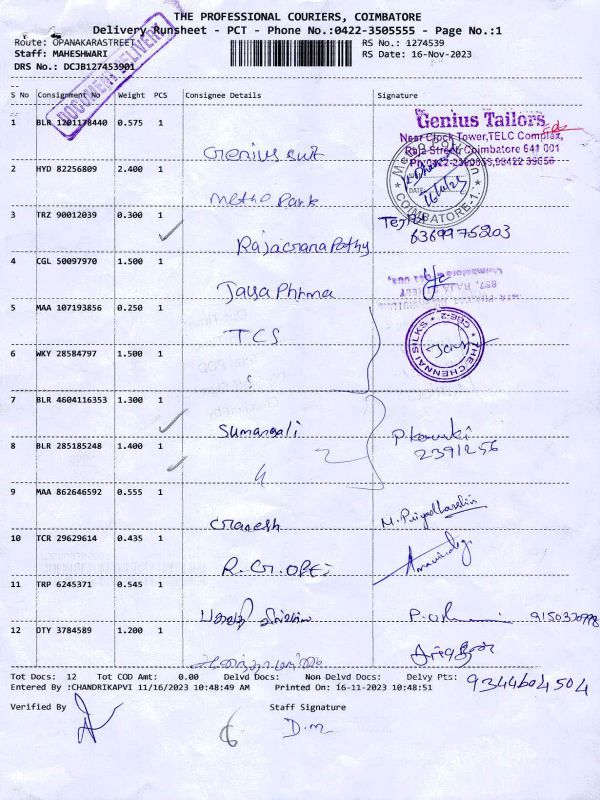 THE PROFESSIONAL COURIERS, COIMBATORE
Delivery Runsheet - PCT - Phone No.:0422-3505555 - Page No.:1
Route: OPANAKARASTREET
RS No.: 1274539
Staff: MAHESHWARI
RS Date: 16-Nov-2023
DRS No.: DCJB127453901
DOCUMENT DELIVERY
S No Consignment No Weight PCS Consignee Details Signature
1 BLR 1201178440 0.575 1 Genius cut
Genius Tailors
Near Clock Tower,TELC Complex,
Raja Street, Coimbatore 641 001
2 HYD 82256809 2.400 1 Metho Park
COIMBATORE-1
3 TRZ 90012039 0.300 1 Rajaganapathy 6369975203
4 CGL 50097970 1.500 1 Jaya Phrma
5 MAA 107193856 0.250 1 TCS
THE CHENNAI SILKS CBE-2
6 WKY 28584797 1.500 1
7 BLR 4604116353 1.300 1 Sumangali
8 BLR 285185248 1.400 1 2391256
9 MAA 862646592 0.555 1 Ganesh M. Priyadharshini
10 TCR 29629614 0.435 1 R.G.OPTi
11 TRP 6245371 0.545 1
12 OTY 3784589 1.200 1
Tot Docs: 12 Tot COD Amt: 0.00 Delvd Docs: Non Delvd Docs: Delvy Pts: 9344604504
Entered By :CHANDRIKAPVI 11/16/2023 10:48:49 AM Printed On: 16-11-2023 10:48:51
Verified By Staff Signature
D.M